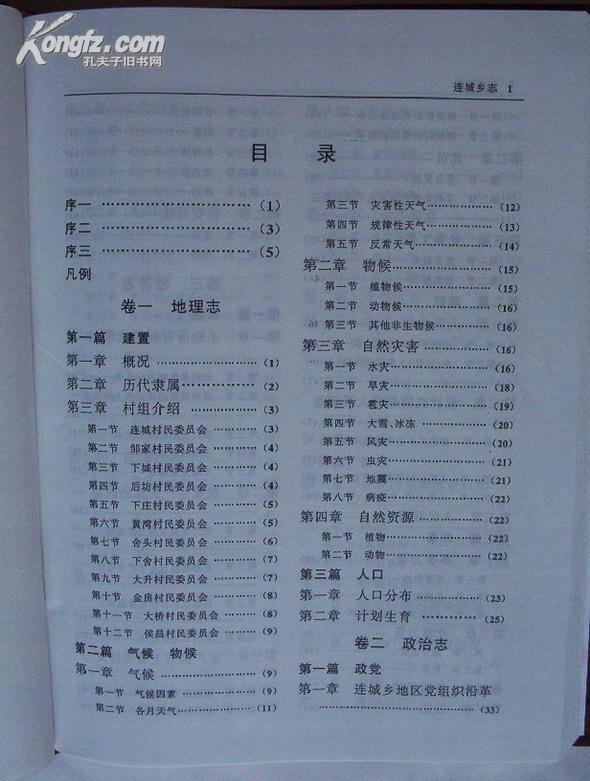 Kongfz.com
孔夫子旧书网
连城乡志 1
目 录
序一 …………………… (1)
序二 …………………… (3)
序三 …………………… (5)
凡例
卷一 地理志
第一篇 建置
第一章 概况 …………… (1)
第二章 历代隶属 ………… (2)
第三章 村组介绍 ………… (3)
第一节 连城村民委员会 …… (3)
第二节 邹家村民委员会 …… (4)
第三节 下城村民委员会 …… (4)
第四节 后坊村民委员会 …… (4)
第五节 下庄村民委员会 …… (5)
第六节 黄湾村民委员会 …… (5)
第七节 舍头村民委员会 …… (6)
第八节 下舍村民委员会 …… (7)
第九节 大升村民委员会 …… (7)
第十节 金房村民委员会 …… (8)
第十一节 大桥村民委员会 …… (8)
第十二节 侯昌村民委员会 …… (9)
第二篇 气候 物候
第一章 气候 …………… (9)
第一节 气候因素 ………… (9)
第二节 各月天气 ………… (11)
第三节 灾害性天气 ………… (12)
第四节 规律性天气 ………… (13)
第五节 反常天气 ………… (14)
第二章 物候 …………… (15)
第一节 植物候 ………… (15)
第二节 动物候 ………… (16)
第三节 其他非生物候 ……… (16)
第三章 自然灾害 ………… (16)
第一节 水灾 …………… (16)
第二节 旱灾 …………… (18)
第三节 雹灾 …………… (19)
第四节 大雪、冰冻 ………… (20)
第五节 风灾 …………… (20)
第六节 虫灾 …………… (21)
第七节 地震 …………… (21)
第八节 病疫 …………… (22)
第四章 自然资源 ………… (22)
第一节 植物 …………… (22)
第二节 动物 …………… (22)
第三篇 人口
第一章 人口分布 ………… (23)
第二章 计划生育 ………… (25)
卷二 政治志
第一篇 政党
第一章 连城乡地区党组织沿革
…………………… (33)